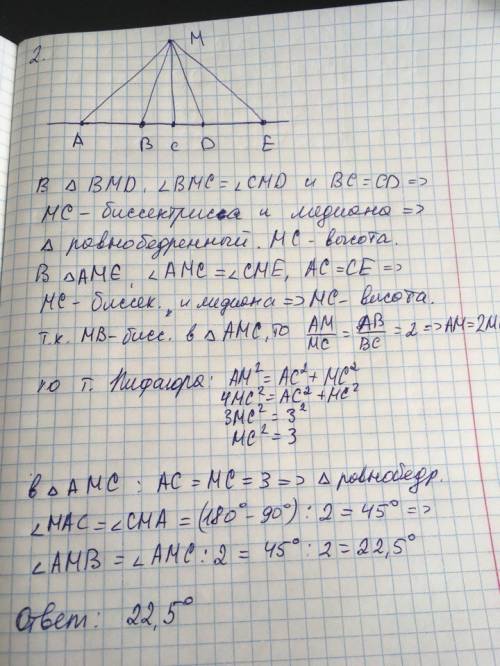 2.
M
A B C D E
В △ BMD. ∠BMC = ∠CMD и BC = CD =>
MC - биссектрисса и медиана =>
△ равнобедренный. MC - высота.
В △AME, ∠AMC = ∠CME, AC = CE =>
MC - биссек. и медиана => MC - высота.
т.к. MB - бисс. в △AMC, то AM/MC = AB/BC = 2 => AM = 2M
по т. Пифагора: AM² = AC² + MC²
4MC² = AC² + MC²
3MC² = 3²
MC² = 3
в △ AMC : AC = MC = 3 => △ равнобедр.
∠MAC = ∠CMA = (180° - 90°) : 2 = 45° =>
∠AMB = ∠AMC : 2 = 45° : 2 = 22,5°
Ответ: 22,5°